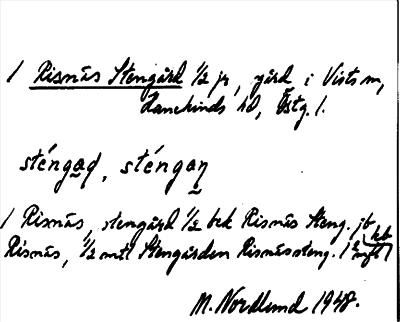 1 Risnäs Stengård 1/2 jr, gård i Vists sn,
Hanekinds hd, Östg. l.
sténga̱d, sténga̱ŋ
1 Risnäs, stengård 1/2 bek Risnäs Steng. jb
Risnäs, 1/2 mtl Stengården Risnässteng.
M. Nordlund 1948.